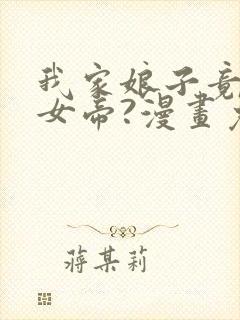 我家娘子竟
女帝?漫畫
蔣某莉